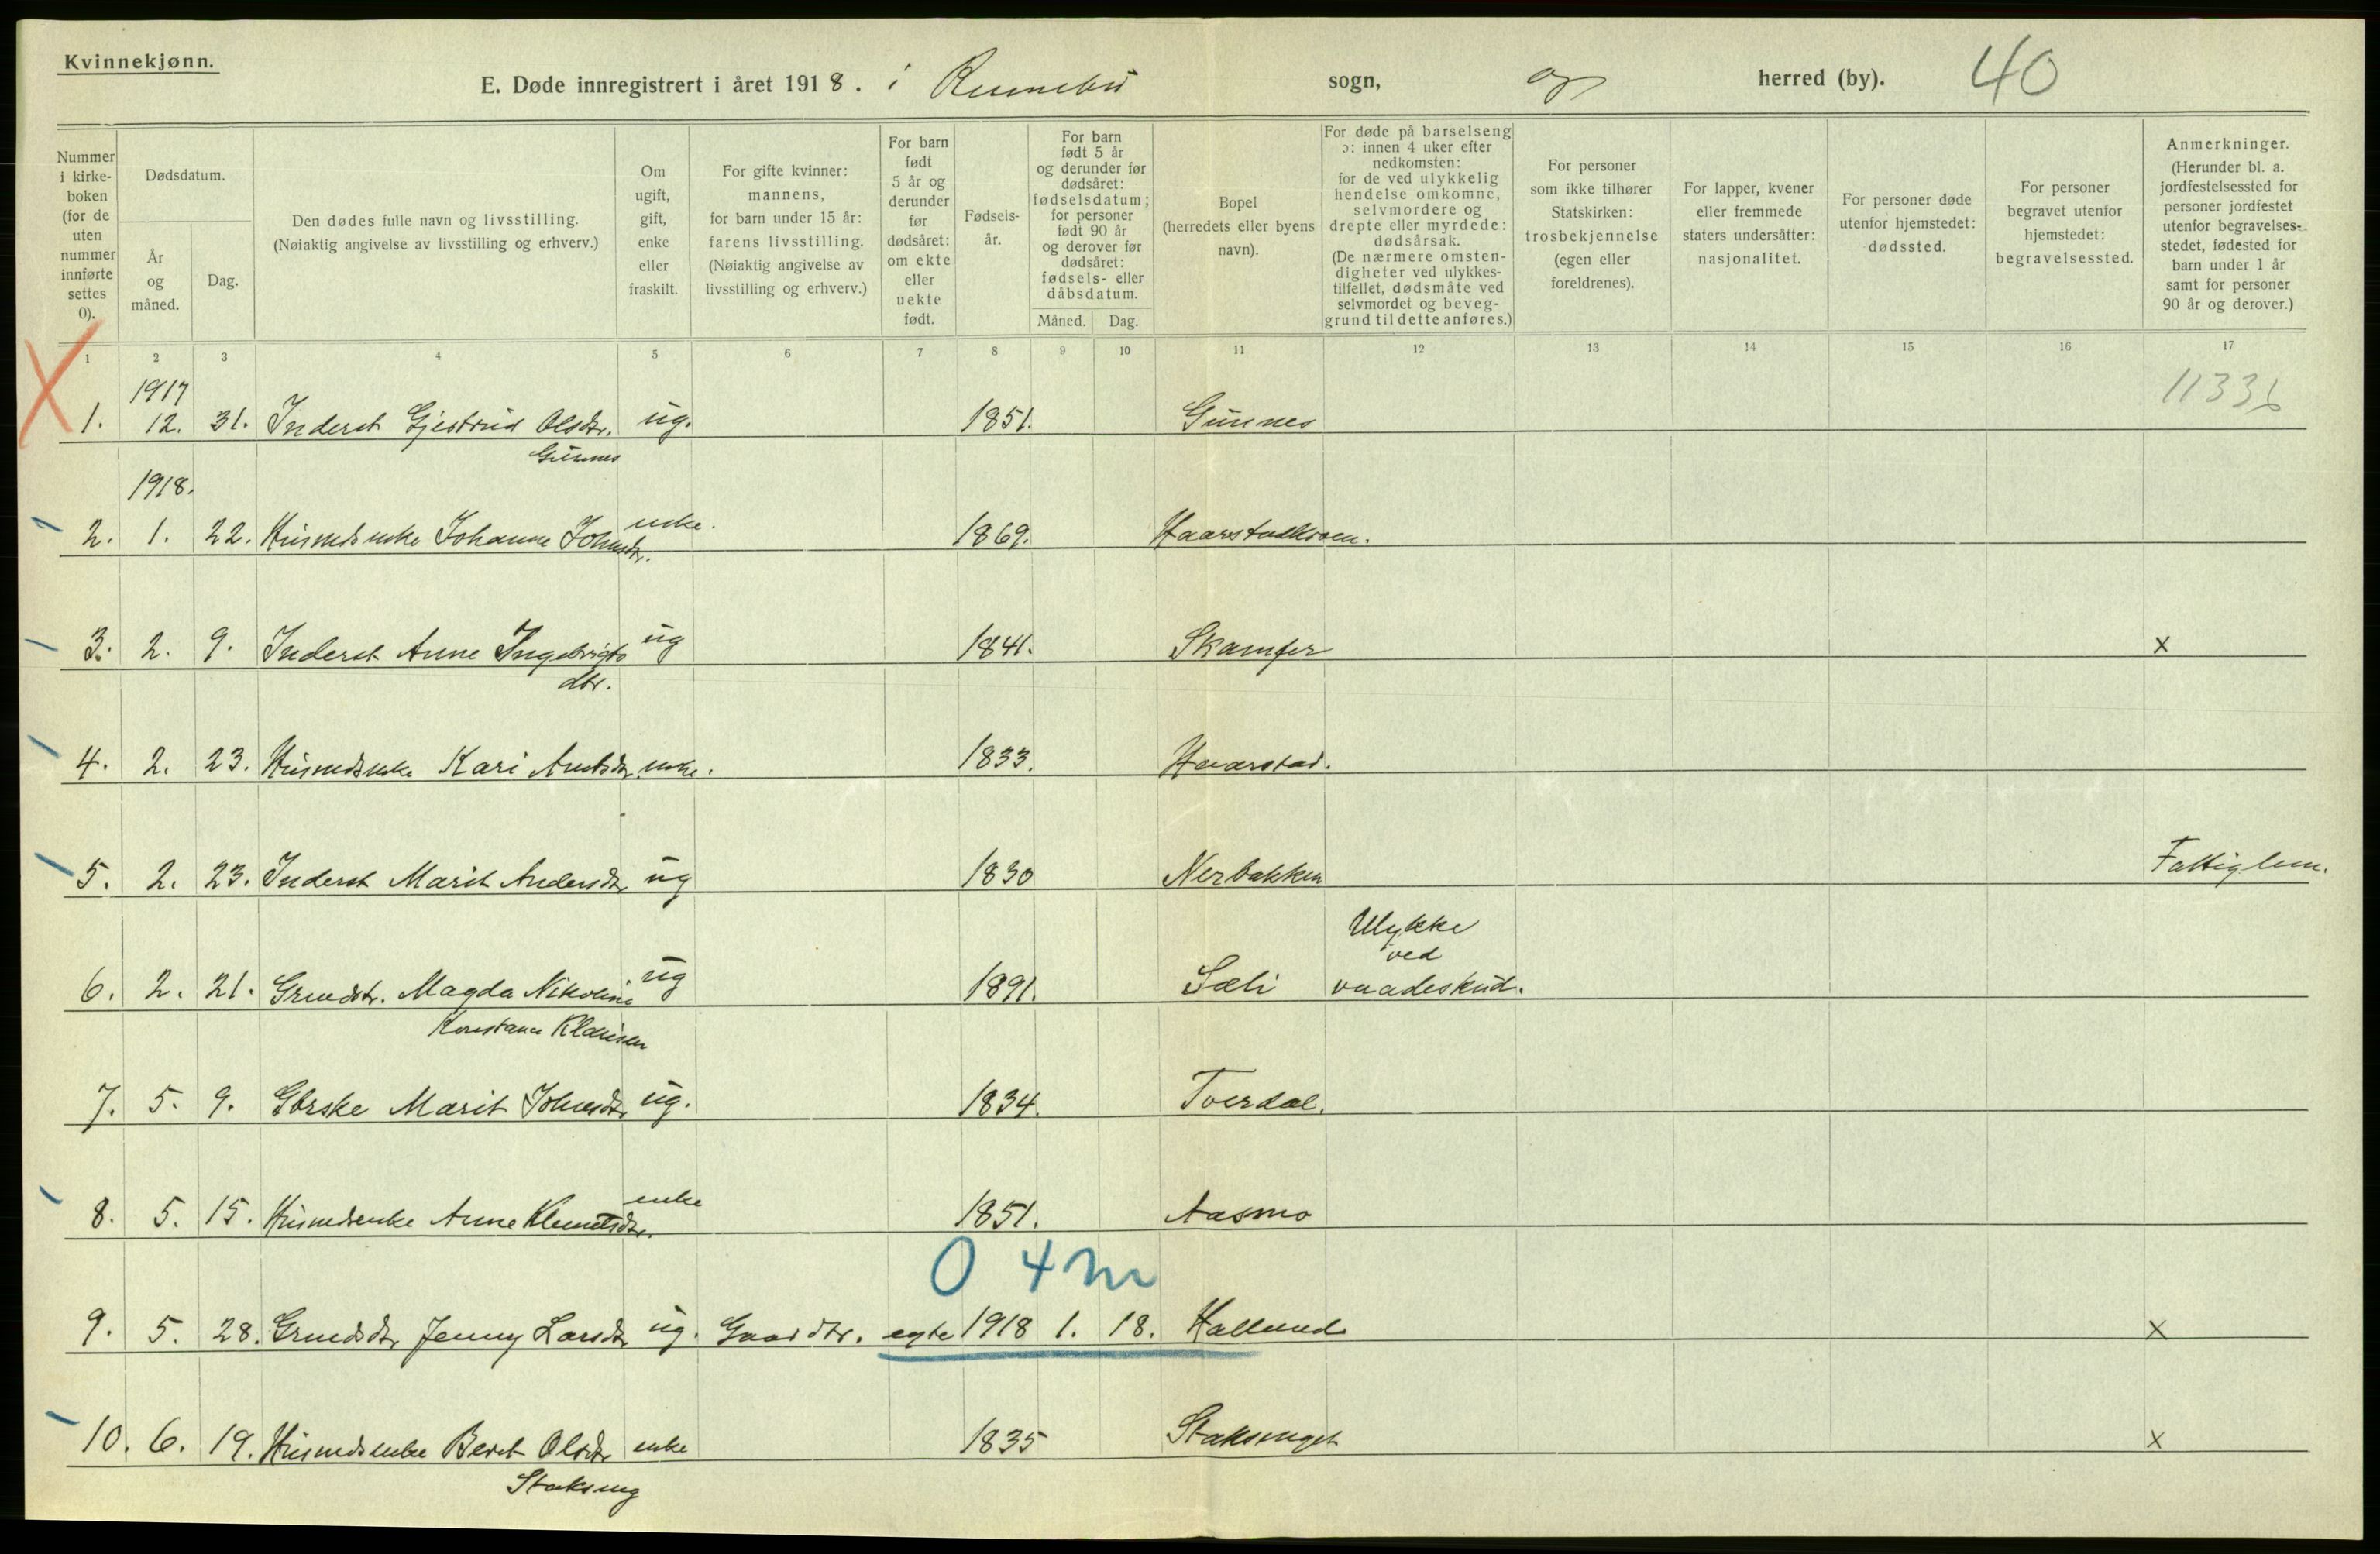 Kvinnekjønn.
E. Døde innregistrert i året 1918. i Rennebu sogn, og herred (by). 40
Nummer i kirke-boken (for de uten nummer innførte settes 0).
Dødsdatum.
År og måned.
Dag.
Den dødes fulle navn og livsstilling. (Nøiaktig angivelse av livsstilling og erhverv.)
Om ugift, gift, enke eller fraskilt.
For gifte kvinner: mannens, for barn under 15 år: farens livsstilling. (Nøiaktig angivelse av livsstilling og erhverv.)
For barn født 5 år og derunder før dødsåret: om ekte eller uekte født.
Fødsels-år.
For barn født 5 år og derunder før dødsåret: fødselsdatum; for personer født 90 år og derover før dødsåret: fødsels- eller dåbsdatum.
Måned. Dag.
Bopel (herredets eller byens navn).
For døde på barselseng ɔ: innen 4 uker efter nedkomsten: for de ved ulykkelig hendelse omkomne, selvmordere og drepte eller myrdede: dødsårsak. (De nærmere omsten-digheter ved ulykkes-tilfellet, dødsmåte ved selvmordet og beveg-grund til dette anføres.)
For personer som ikke tilhører Statskirken: trosbekjennelse (egen eller foreldrenes).
For lapper, kvener eller fremmede staters undersåtter: nasjonalitet.
For personer døde utenfor hjemstedet: dødssted.
For personer begravet utenfor hjemstedet: begravelsessted.
Anmerkninger. (Herunder bl. a. jordfestelsessted for personer jordfestet utenfor begravelses-stedet, fødested for barn under 1 år samt for personer 90 år og derover.)
1 2 3 4 5 6 7 8 9 10 11 12 13 14 15 16 17
1917 1133
1. 12. 31. Inderst Gjertrud Olsdtr. ug. 1851. Gunnes
Gunnes
1918.
2. 1. 22. Husmdsenke Johanne Johnsdtr. enke. 1869. Haarstadkroen.
3. 2. 9. Inderst Anne Ingebrigts ug 1841. Skamfer x
dtr.
4. 2. 23. Husmdsenke Kari Arntsdtr. enke. 1833. Haarstad.
5. 2. 23. Inderst Marit Andersdtr. ug 1830 Nerbakken Fattiglem.
Ulykke
ved
6. 2. 21. Grmdstr. Magda Nikoline ug 1891. Sæli vaadeskud.
Konstance Klausen
7. 5. 9. Gbrske Marit Johnsdtr. ug. 1834. Tverdal.
8. 5. 15. Husmdsenke Anne Klemetsdtr. enke 1851. Aasmo
0 4 m
9. 5. 28. Grmdsdtr. Jenny Larsdtr. ug. Gaardbr. egte 1918 1. 18. Hallund x
10. 6. 19. Husmdsenke Beret Olsdtr. enke 1835 Staksenget x
Stakseng